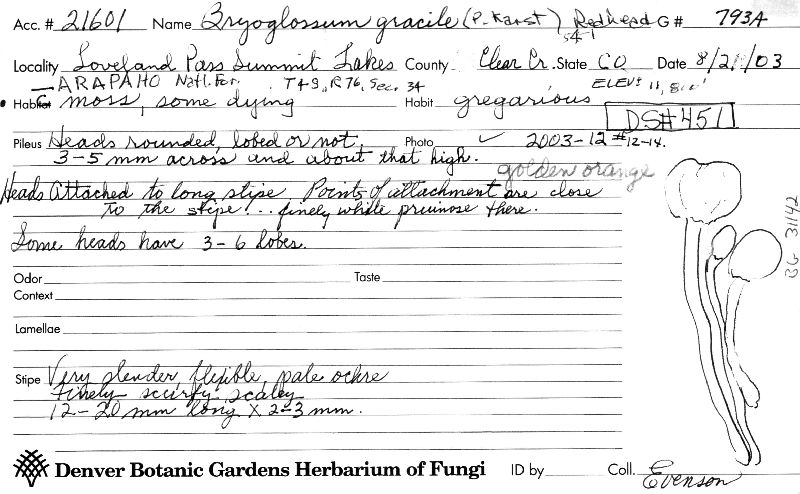 Acc. # 21601 Name Bryoglossum gracile (P. Karst) Redhead G # 793A
Locality Loveland Pass Summit Lakes County Clear Cr. State CO Date 8/2 /03
ARAPAHO Natl. For. T4S, R76, Sec. 34 ELEV: 11,800'
Habitat moss, some dying Habit gregarious
DS#451
Pileus Heads rounded, lobed or not, Photo ✓ 2003-12 #12-14.
3-5 mm across and about that high.
golden orange
Heads Attached to long stipe Points of attachment are close
to the stipe... finely white pruinose there.
Some heads have 3-6 lobes.
Odor Taste
Context
Lamellae
Stipe Very slender, flexible, pale ochre
Finely scurfy scaley
12-20 mm long X 2-3 mm.
Denver Botanic Gardens Herbarium of Fungi ID by Coll. Evenson
BG 31142